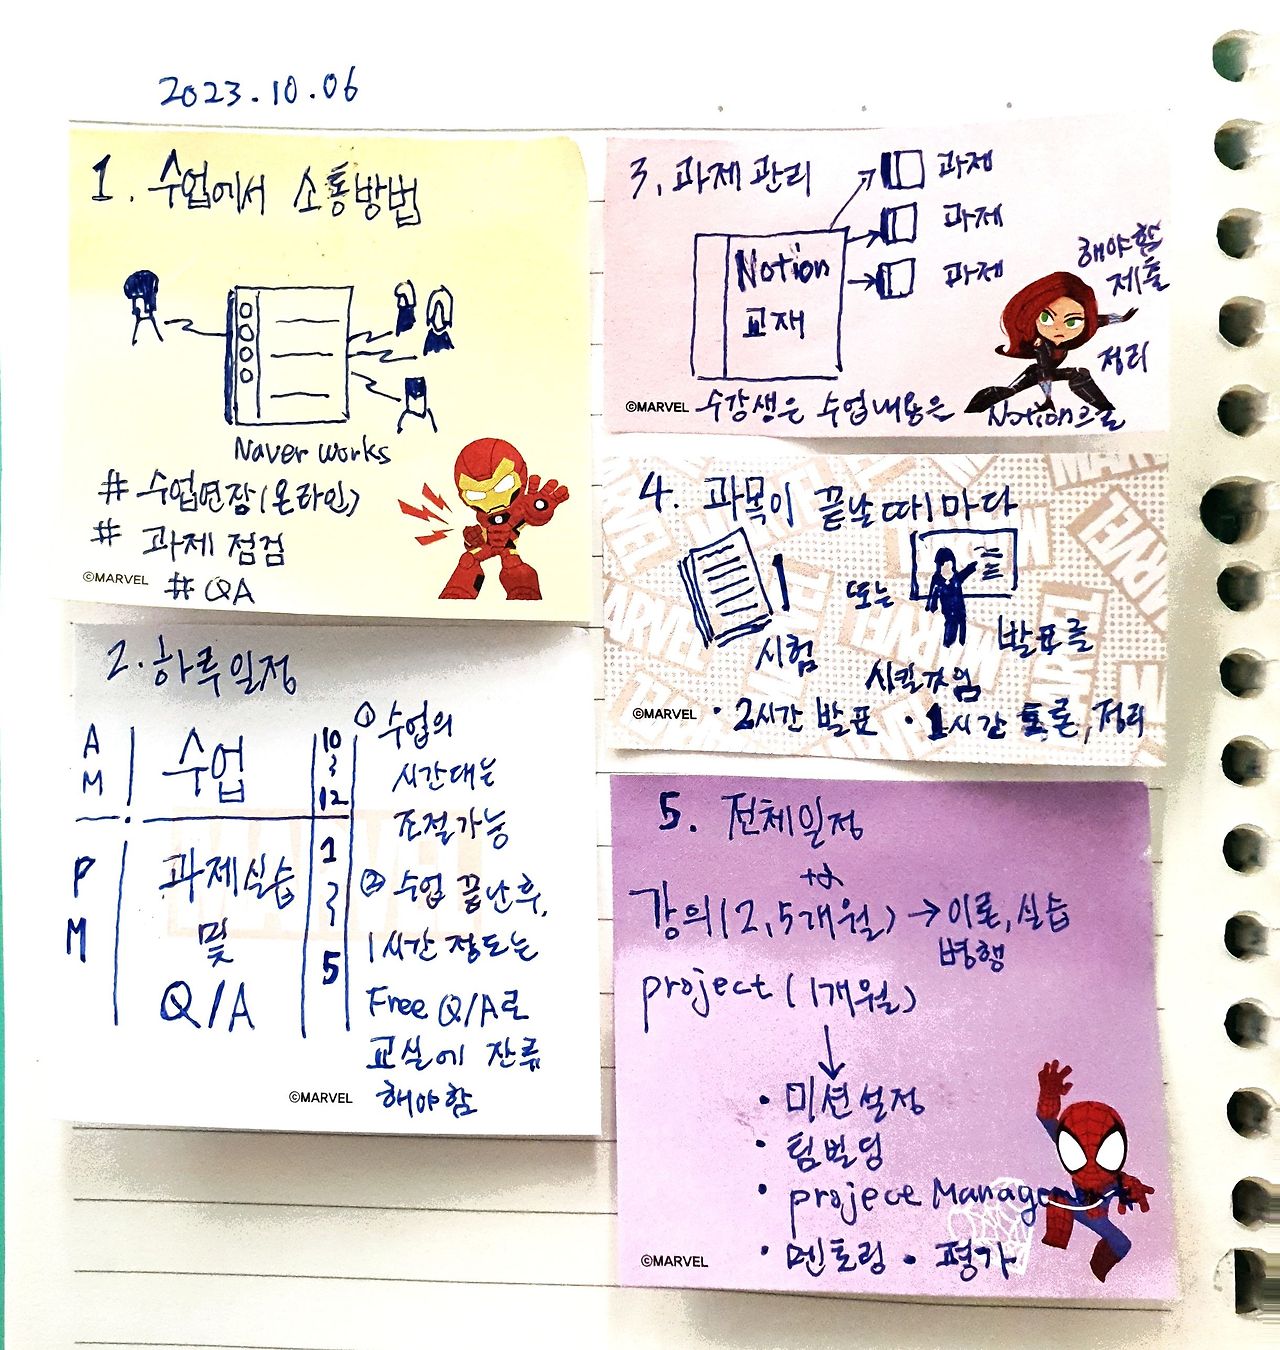 2023.10.06
1. 수업에서 소통방법
Naver works
# 수업연장(온라인)
# 과제 점검
# QA
©MARVEL
2. 하루일정
AM
수업
10
12
PM
과제실습
및
Q/A
1
5
① 수업의
시간대는
조절가능
② 수업 끝난후,
1시간 정도는
Free Q/A로
교실에 잔류
해야함
©MARVEL
3. 과제 관리
과제
과제
과제
Notion
교재
수강생은 수업내용은 Notion으로
정리
제출
해야함
©MARVEL
4. 과목이 끝날때마다
시험
또는
발표를
시킬거임
• 2시간 발표 • 1시간 토론, 정리
©MARVEL
5. 전체일정
강의(2,5개월) → 이론, 실습
병행
project (1개월)
• 미션설정
• 팀빌딩
• project Management
• 멘토링 • 평가
©MARVEL